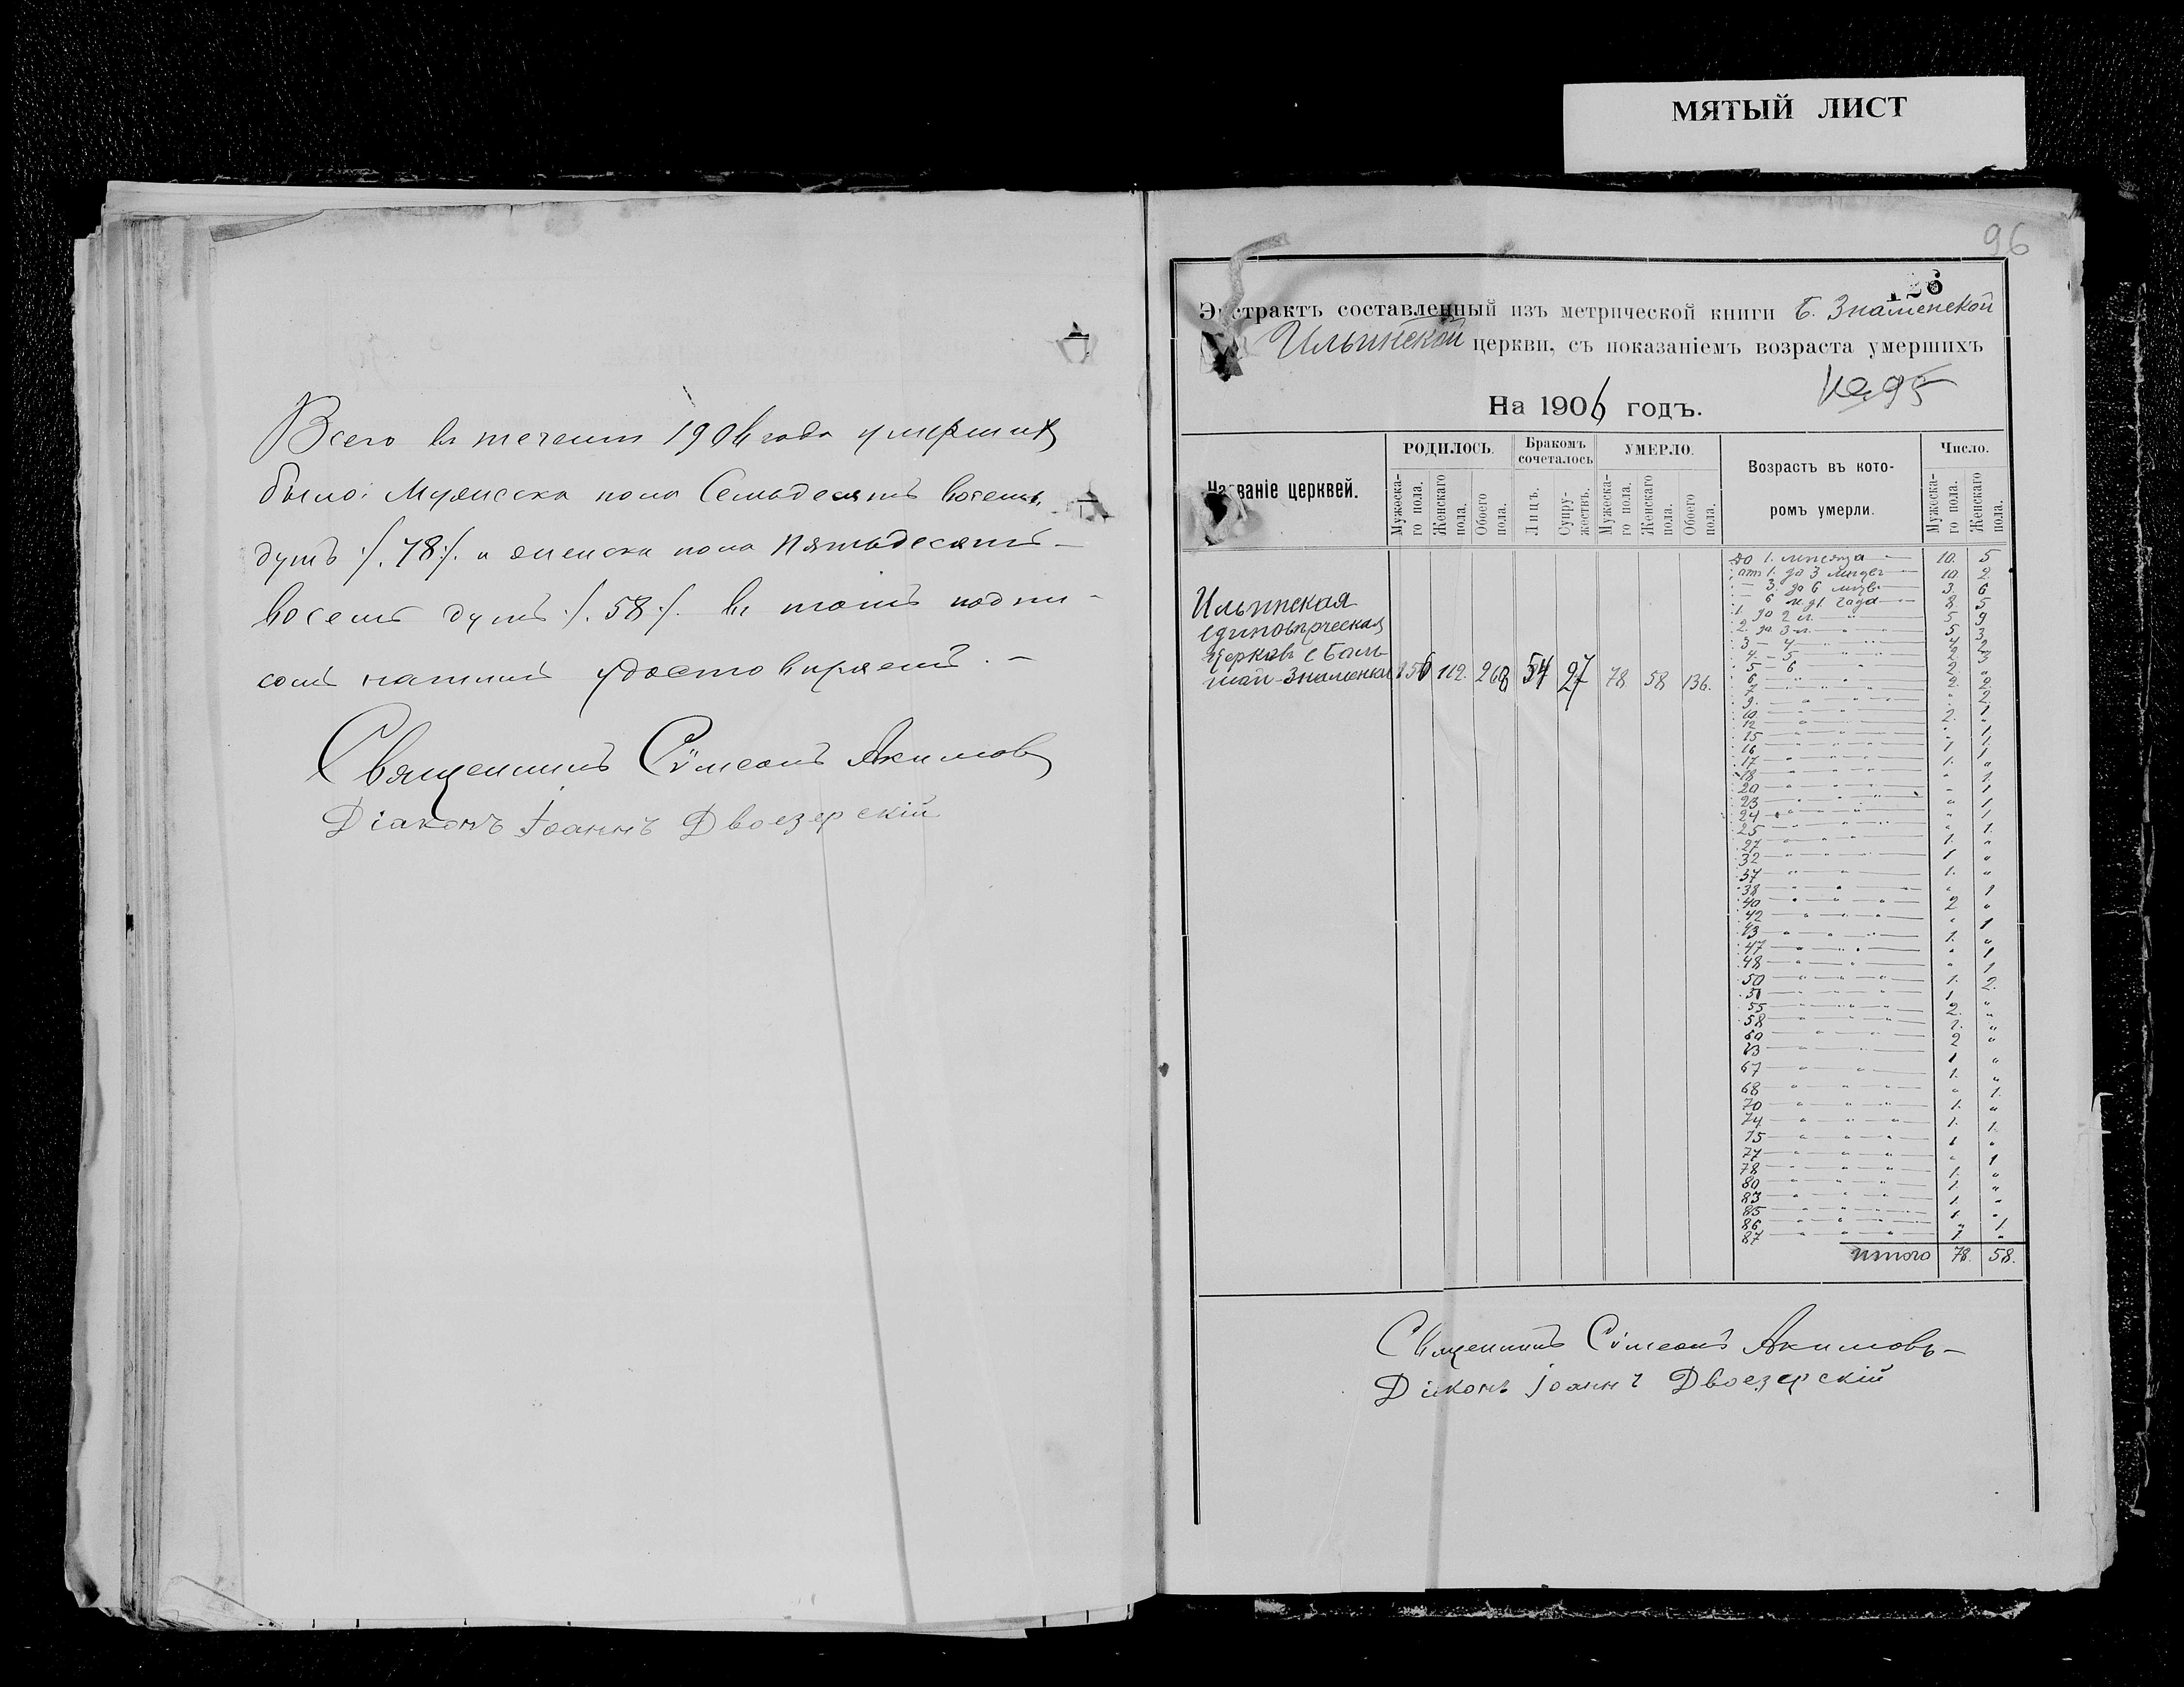 МЯТЫЙ ЛИСТ
Всего въ теченіи 1906 года умершихъ
было: Мужеска пола Семьдесятъ восемь
душъ /.78/. и женска пола Пятьдесятъ
восемь душъ /.58/. въ томъ подпи-
сомъ нашимъ удостовѣряемъ. –
Священникъ Сѵмеонъ Акимовъ
Діаконъ Іоаннъ Двоезерскій
96
126
Экстрактъ составленный изъ метрической книги Б. Знаменской
Ильинской церкви, съ показаніемъ возраста умершихъ
На 1906 годъ.
Названіе церквей.
РОДИЛОСЬ.
Мужеска-го пола.
Женскаго пола.
Обоего пола.
Бракомъ сочеталось
Лицъ.
Супру-жествъ.
УМЕРЛО.
Мужеска-го пола.
Женскаго пола.
Обоего пола.
Возрастъ въ кото-
ромъ умерли.
Число.
Мужеска-го пола.
Женскаго пола.
Ильинская
единовѣрческая
церковь с. Боль
шой-Знаменки 156 112. 268 54 27 78 58 136.
до 1. мѣсяца 10. 5
отъ 1. до 3 10. 2
3. до 6 3. 6
6 м. д1. года 8 5
1. до 2 л. 5 9
2. до 3 л. 5. 3
3 – 4 4 2
4. – 5 2. 3
5 – 6 2. "
6 2. 2
7 " 2.
9.
10
12
15
16
17
18
20
23
24
25
27
32
37
38
40
42
43
47
48
50
51
55
58
60
63
67
68
70
74
75
77
78
80
83
85
86
87
итого 78. 58.
Священникъ Сѵмеонъ Акимовъ –
Діаконъ Іоаннъ Двоезерскій